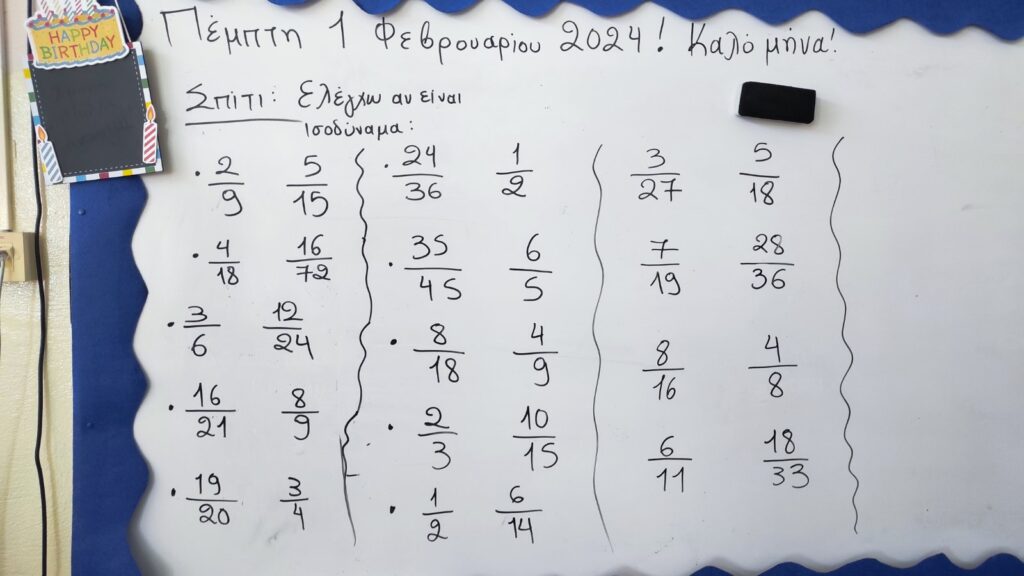 HAPPY
BIRTHDAY
Πέμπτη 1 Φεβρουαρίου 2024! Καλό μήνα!
Σπίτι: Ελέγχω αν είναι
ισοδύναμα:
• 2/9 5/15
• 4/18 16/72
• 3/6 12/24
• 16/21 8/9
• 19/20 3/4
• 24/36 1/2
• 35/45 6/5
• 8/18 4/9
• 2/3 10/15
• 1/2 6/14
3/27 5/18
7/19 28/36
8/16 4/8
6/11 18/33